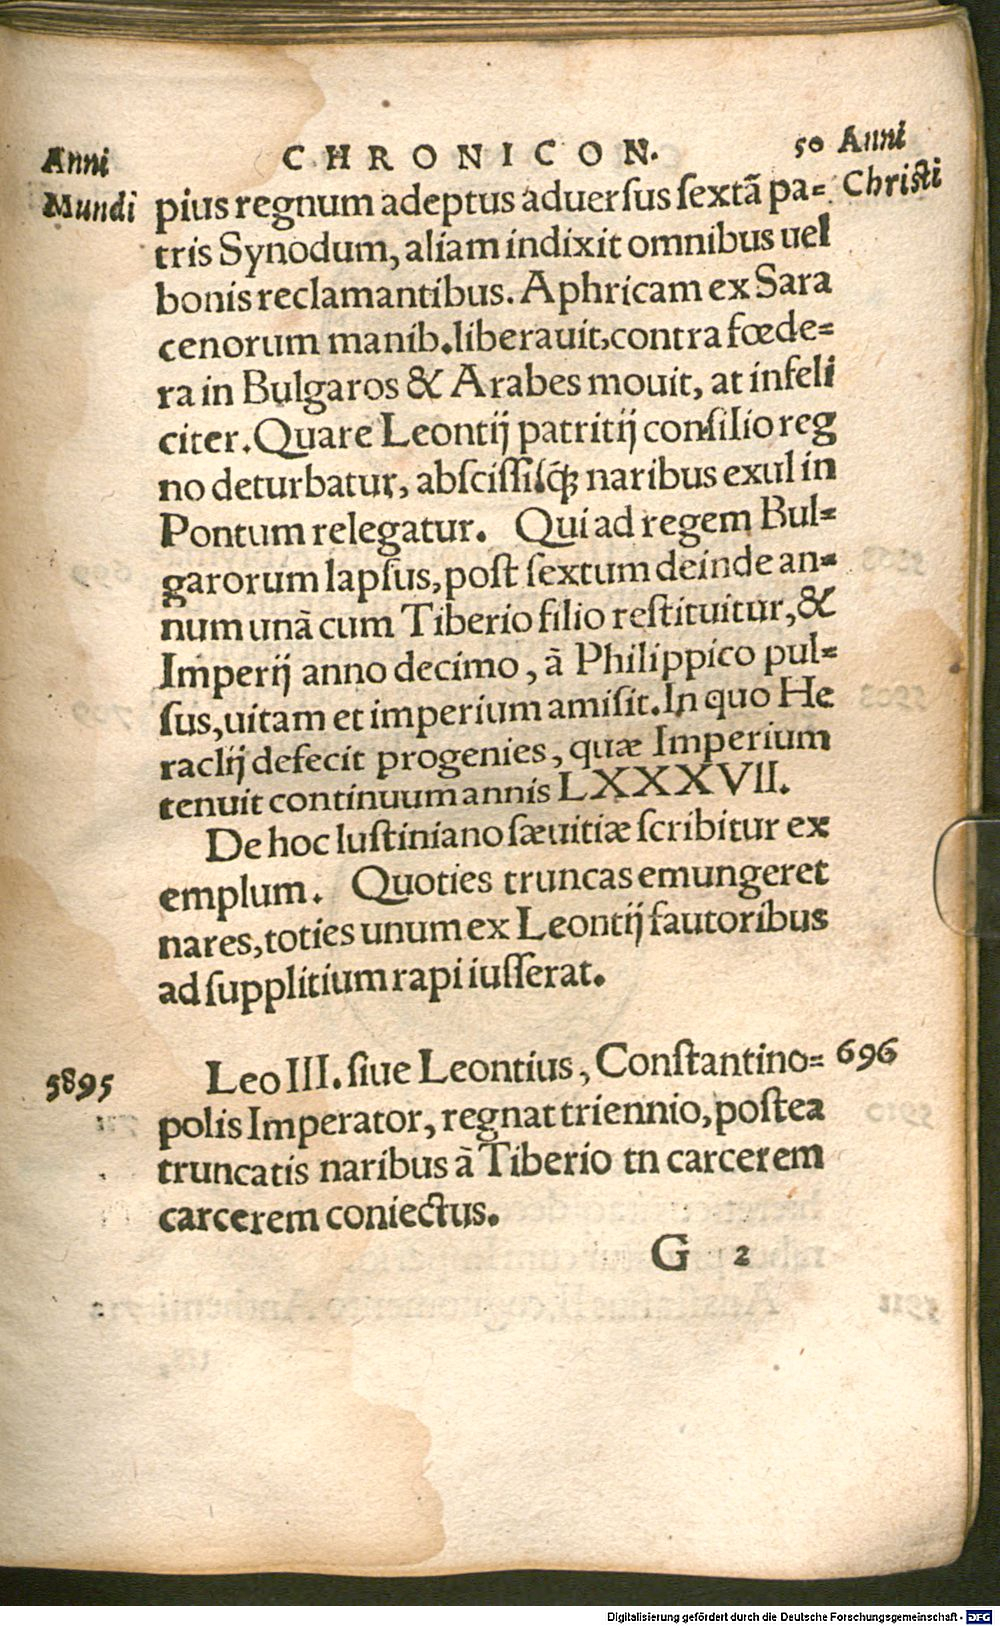 Anni CHRONICON. 50 Anni
Mundi pius regnum adeptus aduersus sextā pa= Christi
tris Synodum, aliam indixit omnibus uel
bonis reclamantibus. Aphricam ex Sara
cenorum manib. liberauit, contra fœde=
ra in Bulgaros & Arabes mouit, at infeli
citer. Quare Leontij patritij consilio reg
no deturbatur, abscissisq́; naribus exul in
Pontum relegatur. Qui ad regem Bul=
garorum lapsus, post sextum deinde an=
num unā cum Tiberio filio restituitur, &
Imperij anno decimo, ā Philippico pul=
sus, uitam et imperium amisit. In quo He
raclij defecit progenies, quæ Imperium
tenuit continuum annis LXXXVII.
De hoc Iustiniano sæuitiæ scribitur ex
emplum. Quoties truncas emungeret
nares, toties unum ex Leontij fautoribus
ad supplitium rapi iusserat.
5895 Leo III. siue Leontius, Constantino= 696
polis Imperator, regnat triennio, postea
truncatis naribus ā Tiberio tn carcerem
carcerem coniectus.
G 2
Digitalisierung gefördert durch die Deutsche Forschungsgemeinschaft - DFG